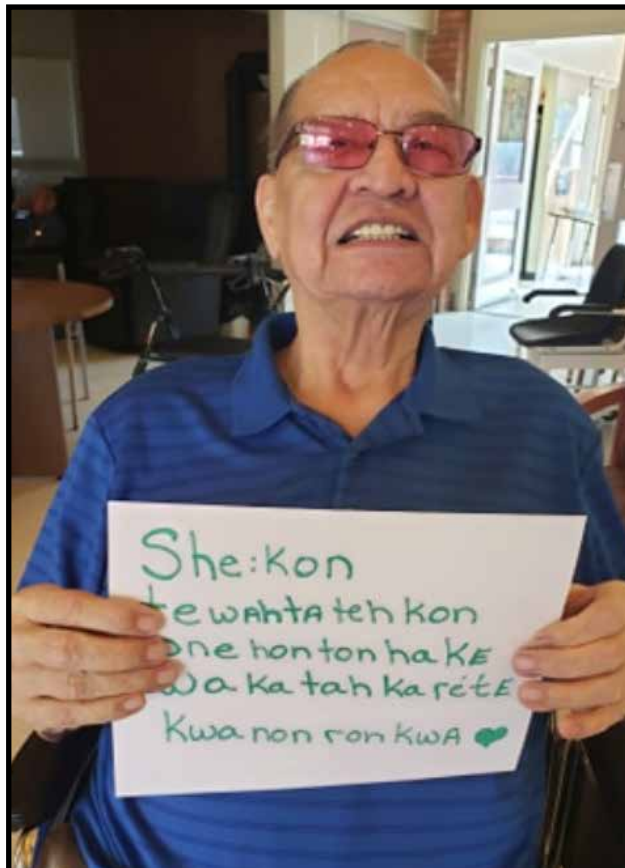 She:kon
tewahtatehkon
onehontonhake
wakatahkaréte
kwanonronkwa ♥